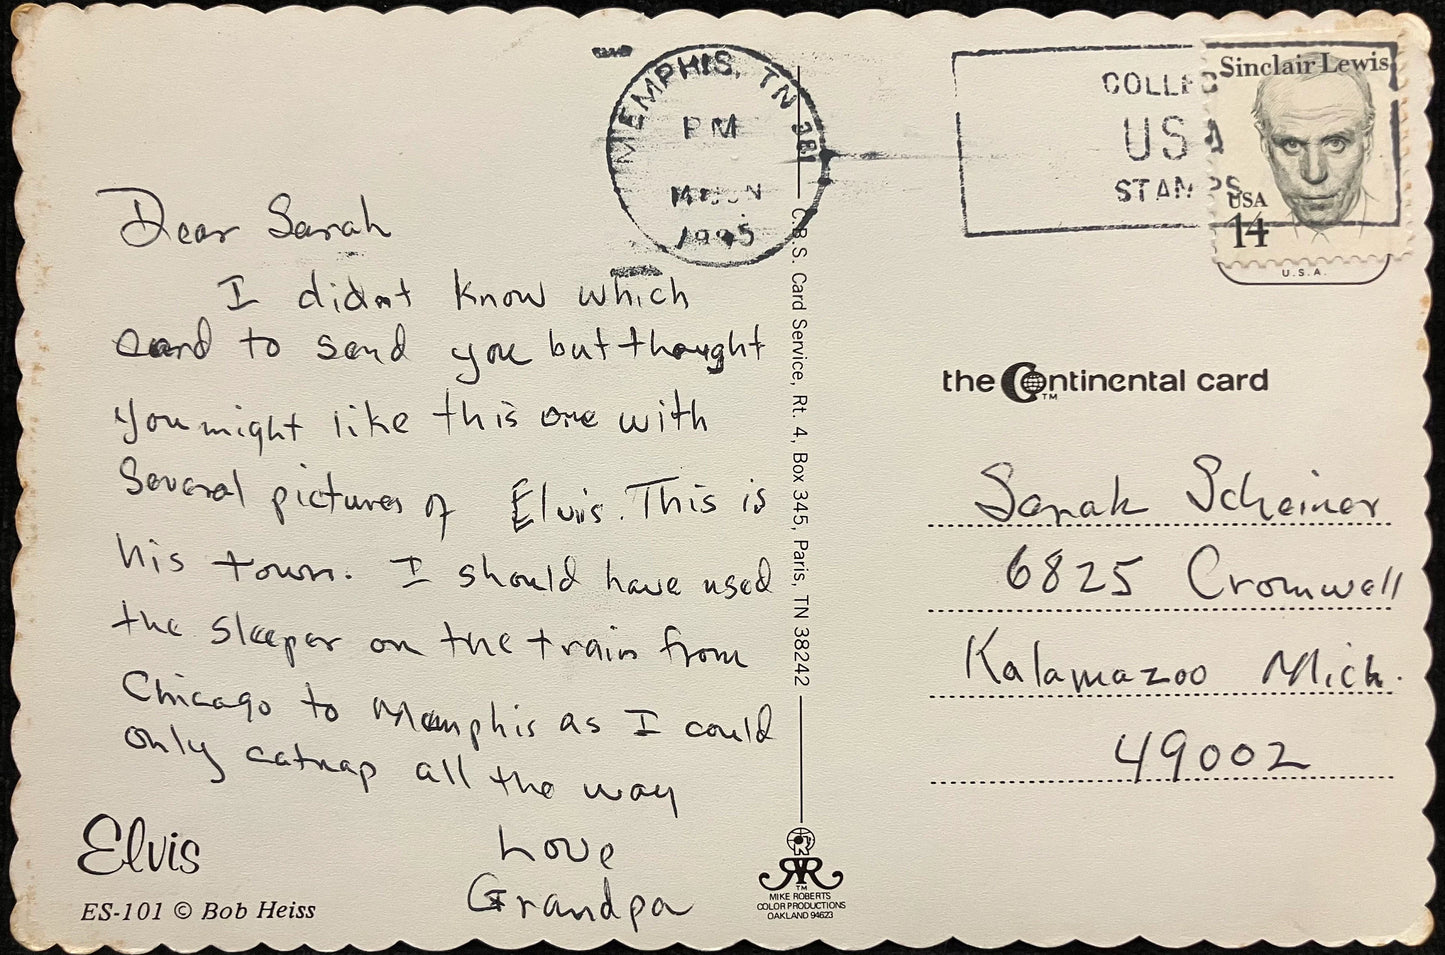 MEMPHIS, TN 381
PM
JUN
1995
COLLECT
USA
STAMPS
Sinclair Lewis
USA
14
U.S.A.
Dear Sarah
I didnt know which
card to send you but thought
you might like this one with
Several pictures of Elvis. This is
his town. I should have used
the sleeper on the train from
Chicago to Memphis as I could
only catnap all the way
Love
Grandpa
Elvis
ES-101 © Bob Heiss
C.B.S. Card Service, Rt. 4, Box 345, Paris, TN 38242
TM
MIKE ROBERTS
COLOR PRODUCTIONS
OAKLAND 94623
the Continental card
TM
Sarah Scheiner
6825 Cromwell
Kalamazoo Mich.
49002